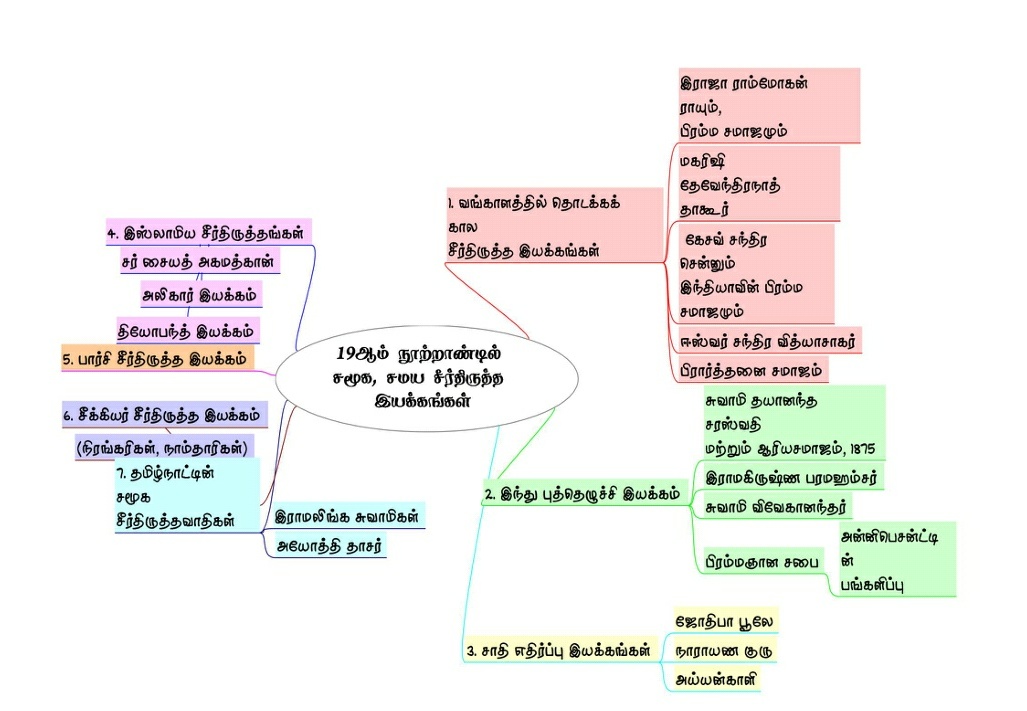 19ஆம் நூற்றாண்டில்
சமூக, சமய சீர்திருத்த
இயக்கங்கள்
1. வங்காளத்தில் தொடக்கக்
கால
சீர்திருத்த இயக்கங்கள்
இராஜா ராம்மோகன்
ராயும்,
பிரம்ம சமாஜமும்
மகரிஷி
தேவேந்திரநாத்
தாகூர்
கேசவ் சந்திர
சென்னும்
இந்தியாவின் பிரம்ம
சமாஜமும்
ஈஸ்வர் சந்திர வித்யாசாகர்
பிரார்த்தனை சமாஜம்
2. இந்து புத்தெழுச்சி இயக்கம்
சுவாமி தயானந்த
சரஸ்வதி
மற்றும் ஆரியசமாஜம், 1875
இராமகிருஷ்ண பரமஹம்சர்
சுவாமி விவேகானந்தர்
பிரம்மஞான சபை
அன்னிபெசன்ட்டி
ன்
பங்களிப்பு
3. சாதி எதிர்ப்பு இயக்கங்கள்
ஜோதிபா பூலே
நாராயண குரு
அய்யன்காளி
4. இஸ்லாமிய சீர்திருத்தங்கள்
சர் சையத் அகமத்கான்
அலிகார் இயக்கம்
தியோபந்த் இயக்கம்
5. பார்சி சீர்திருத்த இயக்கம்
6. சீக்கியர் சீர்திருத்த இயக்கம்
(நிரங்கரிகள், நாம்தாரிகள்)
7. தமிழ்நாட்டின்
சமூக
சீர்திருத்தவாதிகள்
இராமலிங்க சுவாமிகள்
அயோத்தி தாசர்